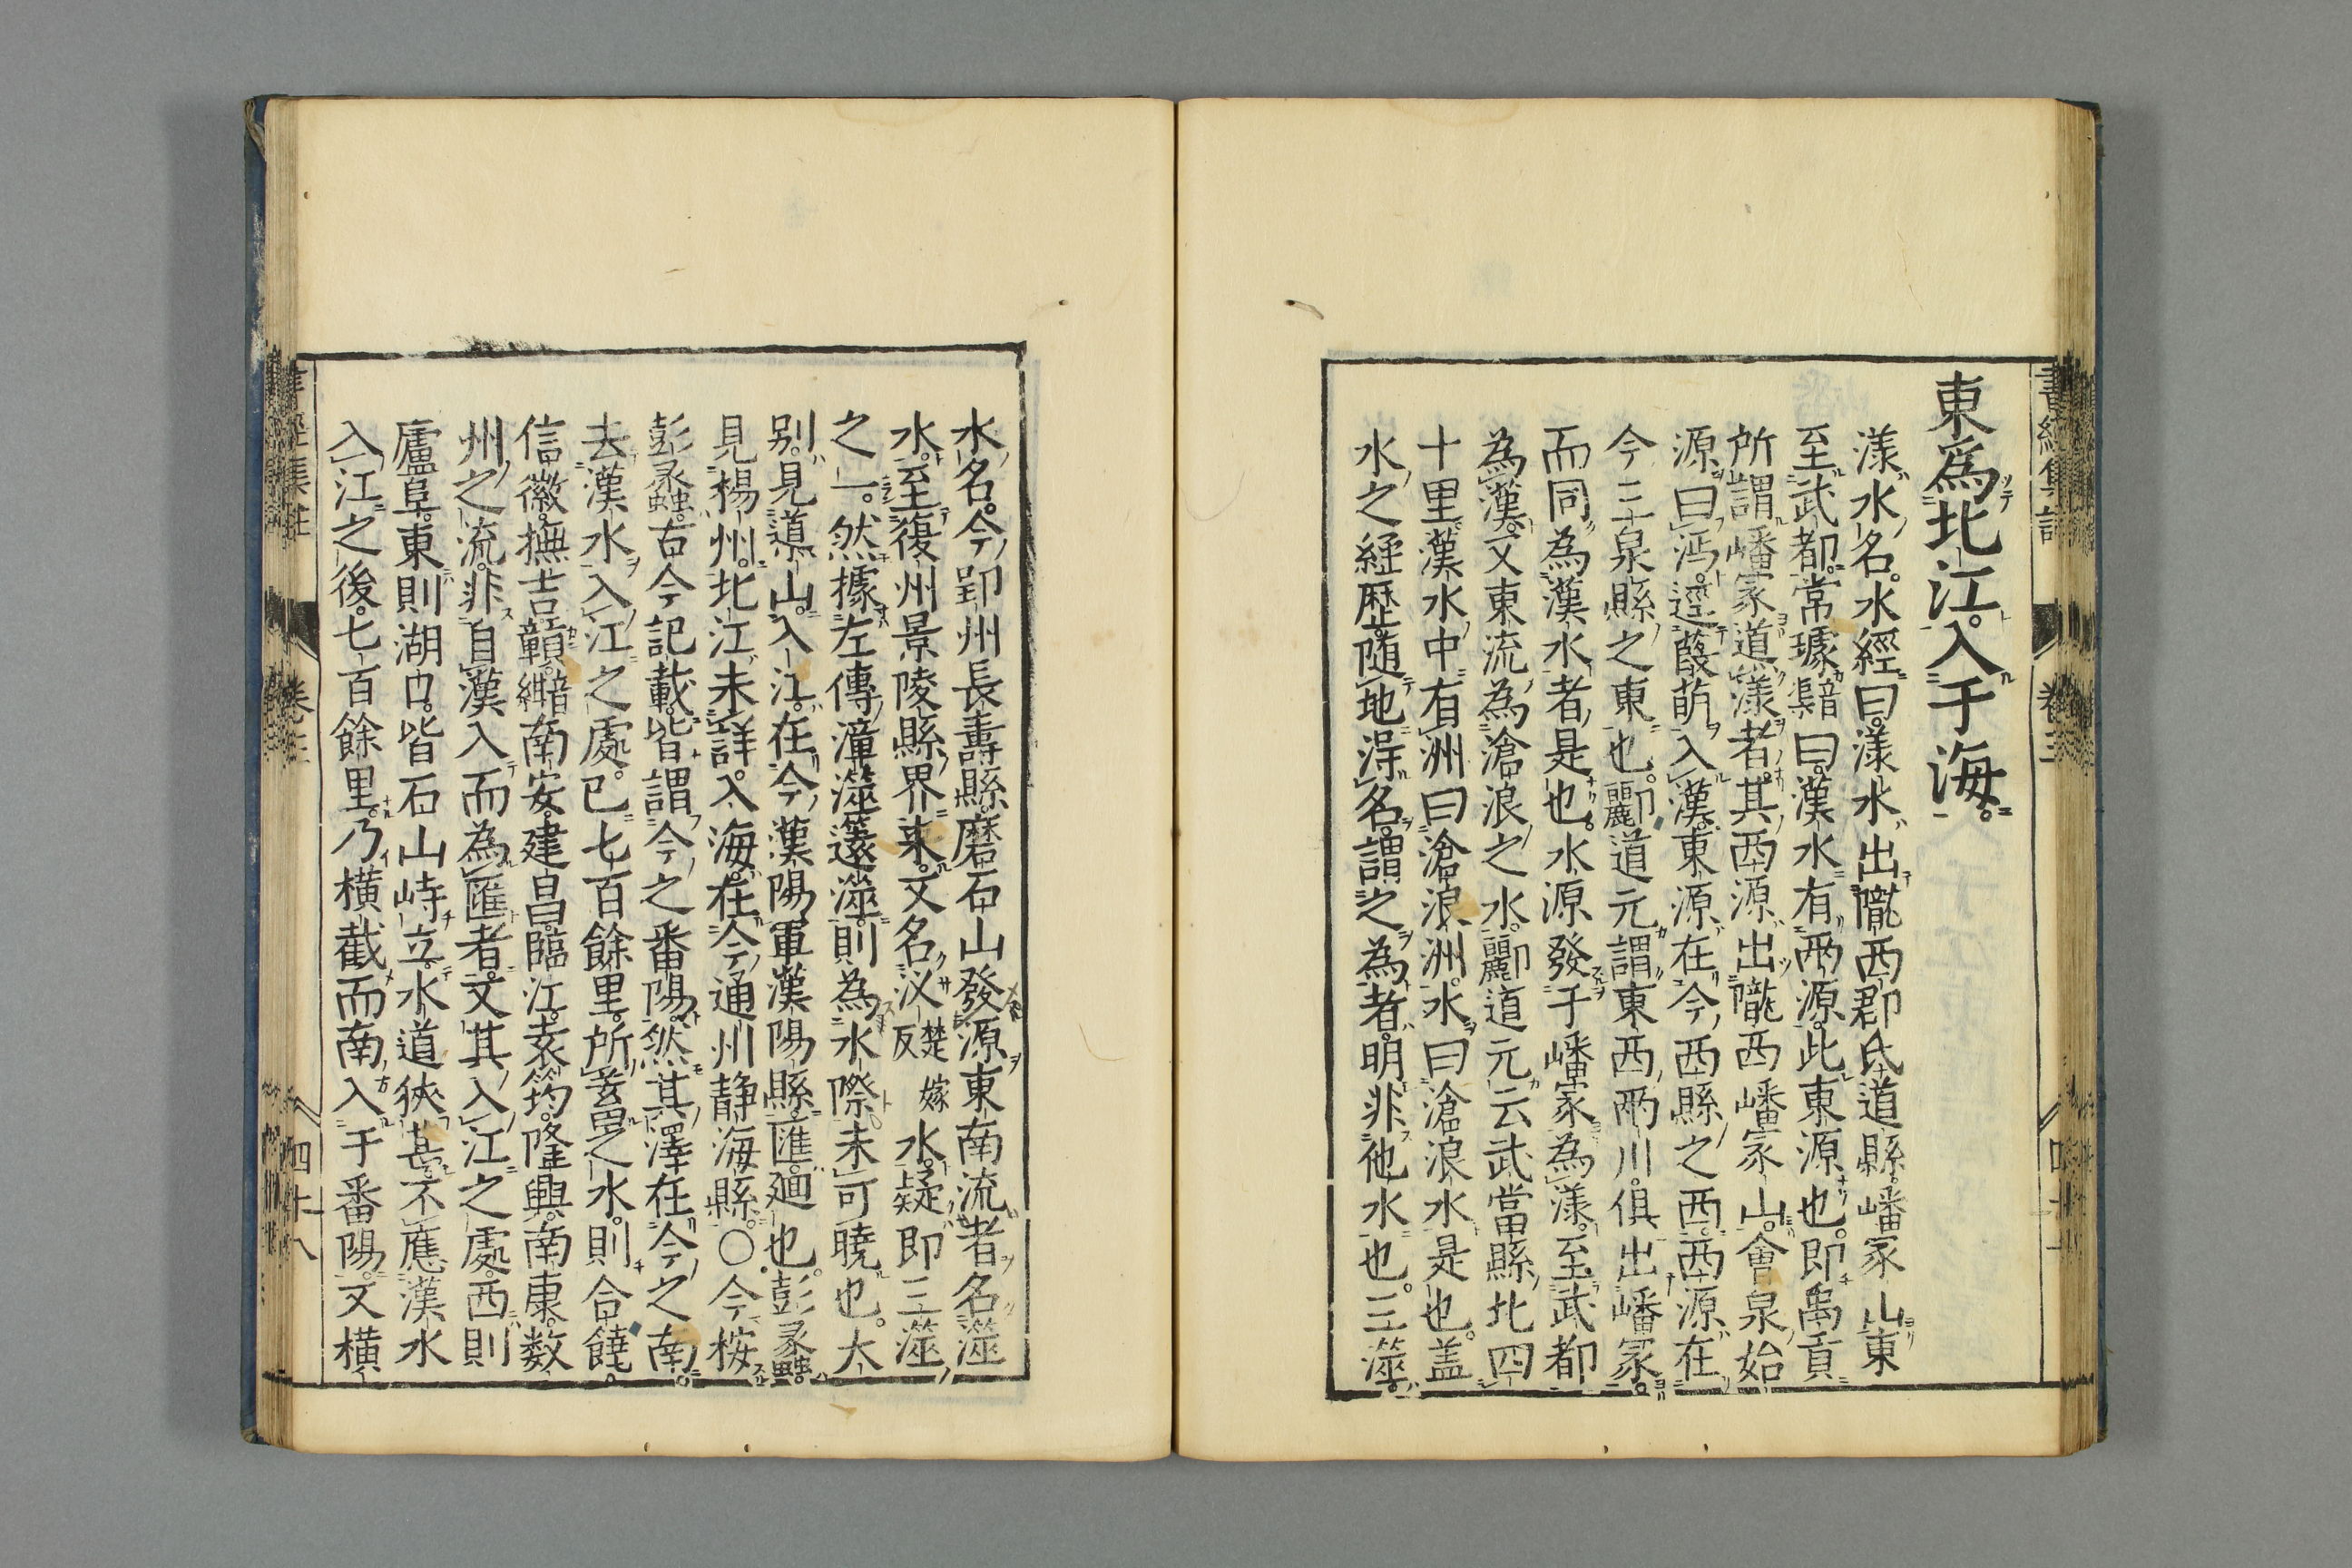 東爲北江入于海
漾水名水經曰漾水出隴西郡氐道縣嶓冢山東
至武都常璩曰漢水有兩源此東源也即禹貢
所謂嶓冢道漾者其西源出隴西嶓冢山會泉始
源曰沔逕葭萌入漢東源在今西縣之西西源在
今三泉縣之東也酈道元謂東西兩川俱出嶓冢
而同為漢水者是也水源發于嶓冢為漾至武都
為漢又東流為滄浪之水酈道元云武當縣北四
十里漢水中有洲曰滄浪洲水曰滄浪水是也盖
水之經歷随地得名謂之為者明非他水也三澨
水名今郢州長壽縣磨石山發源東南流者名澨
水至復州景陵縣界来又名汊楚嫁反水疑即三澨
之一然據左傳漳澨薳澨則為水際未可曉也大
别見道山入江在今漢陽軍漢陽縣匯廻也彭蠡
見楊州北江未詳入海在今通州静海縣○今桉
彭蠡古今記載皆謂今之番陽然其澤在今之南
去漢水入江之處已七百餘里所蓄之水則合饒
信徽撫吉贛南安建昌臨江袁筠隆興南康数
州之流非自漢入而為匯者又其入江之處西則
廬阜東則湖口皆石山峙立水道狹甚不應漢水
入江之後七百餘里乃横截而南入于番陽又横
四十八